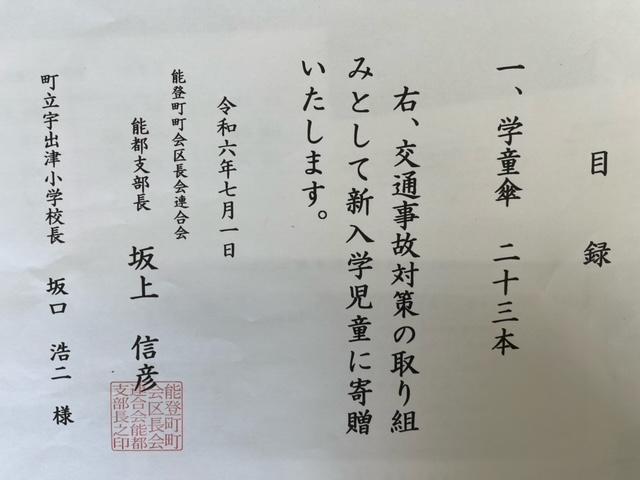 目録
一、学童傘 二十三本
右、交通事故対策の取り組
みとして新入学児童に寄贈
いたします。
令和六年七月一日
能登町町会区長会連合会
能都支部長 坂上 信彦
能登町町
会区長会
連合会能都
支部長之印
町立宇出津小学校長 坂口 浩二 様